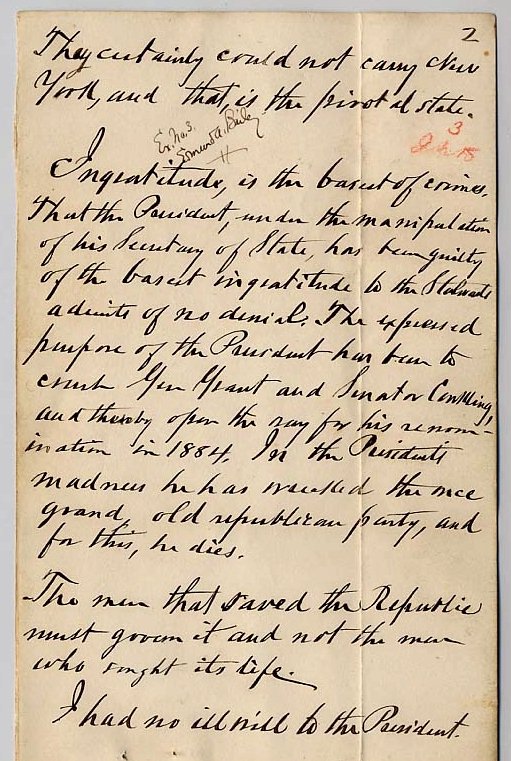 2
They certainly could not carry New
York, and that, is the pivotal state.
Ex. No. 3.
3
Ingratitude, is the basest of crimes.
That the President, under the manipulation
of his Secretary of State, has been guilty
of the basest ingratitude to the Stalwarts
admits of no denial. The expressed
purpose of the President has been to
crush Gen Grant and Senator Conkling,
and thereby open the way for his renom-
ination in 1884. In the President's
madness he has wrecked the once
grand, old republican party, and
for this, he dies.
The men that saved the Republic
must govern it and not the men
who sought its life.
I had no ill will to the President.